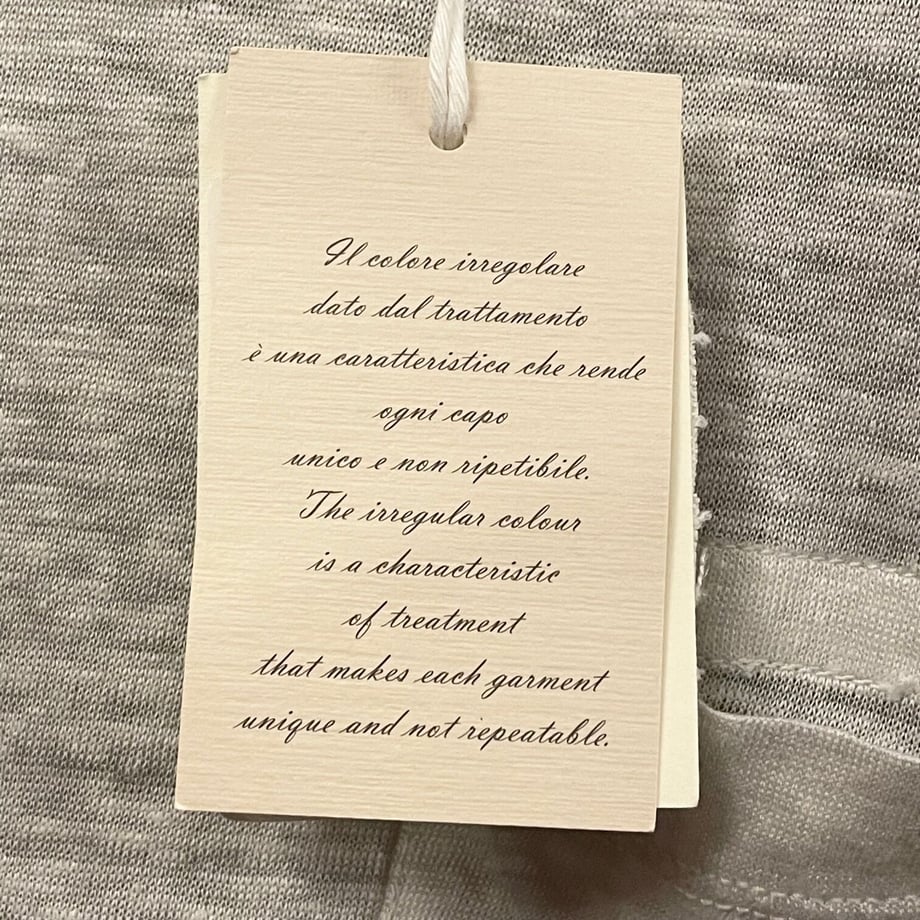 Il colore irregolare
dato dal trattamento
è una caratteristica che rende
ogni capo
unico e non ripetibile.
The irregular colour
is a characteristic
of treatment
that makes each garment
unique and not repeatable.